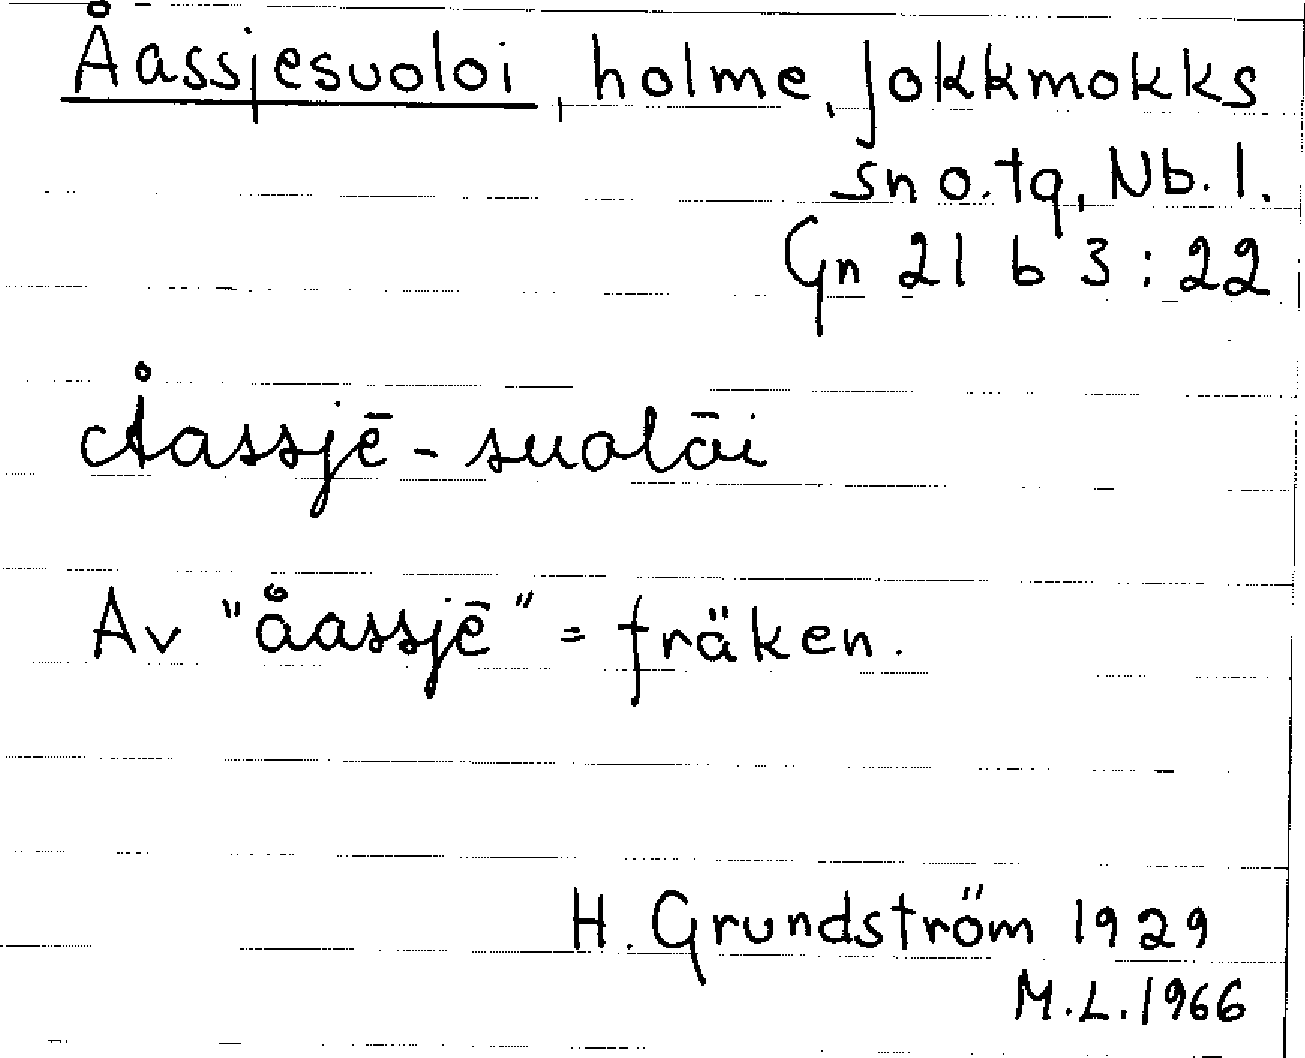 Åassjesuoloi, holme, Jokkmokks
sn o. tg, Nb. l.
Gn 21 b 3 : 22
Åassjē - suolōi
Av "åassjē" = fräken.
H. Grundström 1929
M.L. 1966